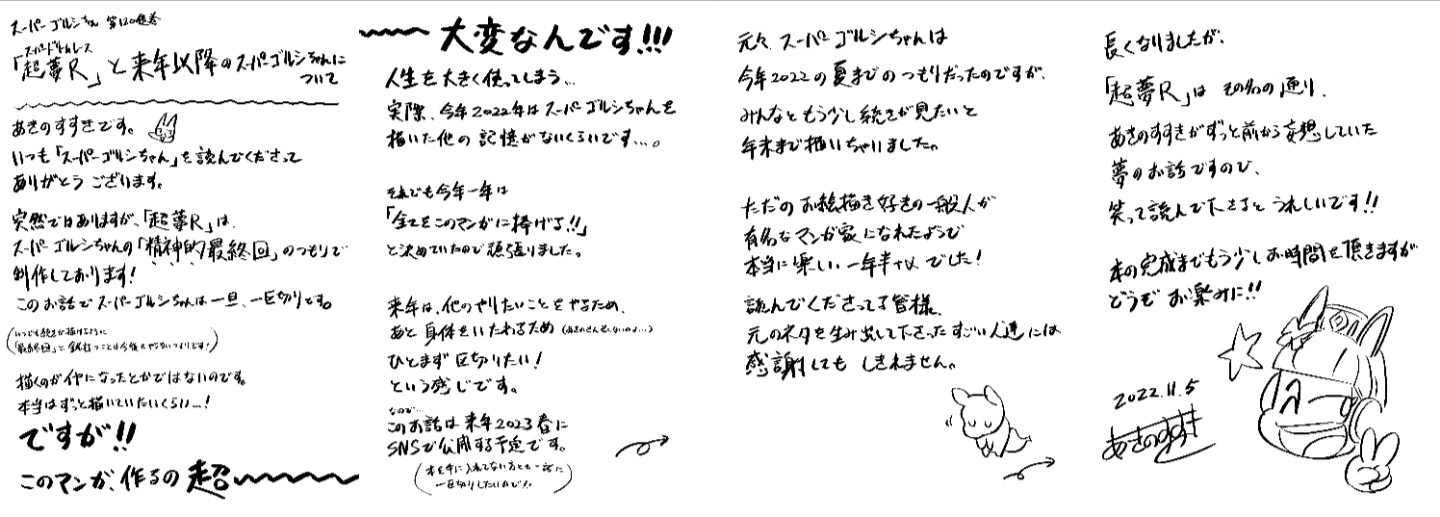 スーパーゴルシちゃん 第120回巻
スーパードリームレース
「超夢R」と来年以降のスーパーゴルシちゃんに
ついて
あきのすすきです。
いつも「スーパーゴルシちゃん」を読んでくださって
ありがとうございます。
突然ではありますが、「超夢R」は、
スーパーゴルシちゃんの「精神的最終回」のつもりで
制作しております!
このお話でスーパーゴルシちゃんは一旦、一区切りです。
(いつでも続きが描けるように
「最終回」と銘打つことは今後もやらないつもりです!)
描くのがイヤになったとかではないのです。
本当はずっと描いていたいくらい…!
ですが!!
このマンガ、作るの超〜〜〜
〜〜大変なんです!!!
人生を大きく使ってしまう…
実際、今年2022年はスーパーゴルシちゃんを
描いた他の記憶がないくらいです…。
それでも今年一年は
「全てをこのマンガに捧げる!!」
と決めていたので頑張りました。
来年は、他のやりたいことをやるため、
あと身体をいたわるため
ひとまず区切りたい!
という感じです。
なので…
このお話は来年2023春に
SNSで公開する予定です。
(本を手に入れてない方とも一緒に
一区切りしたいので!!)
元々、スーパーゴルシちゃんは
今年2022の夏までのつもりだったのですが、
みんなともう少し続きが見たいと
年末まで描いちゃいました。
ただのお絵描き好きの一般人が
有名なマンガ家になれたようで
本当に楽しい一年半でした!
読んでくださってる皆様、
元のネタを生み出して下さったすごい人達には
感謝してもしきれません。
長くなりましたが、
「超夢R」はその名の通り、
あきのすすきがずっと前から妄想していた
夢のお話ですので、
笑って読んで下さるとうれしいです!!
本の完成までもう少しお時間を頂きますが
どうぞお楽みに!!
2022.11.5
あきのすすき